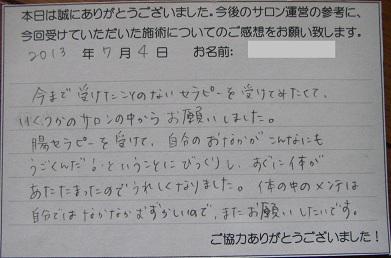 本日は誠にありがとうございました。今後のサロン運営の参考に、
今回受けていただいた施術についてのご感想をお願い致します。
2013 年 7 月 4 日 お名前:
今まで受けたことのないセラピーを受けてみたくて、
いくつかのサロンの中からお願いしました。
腸セラピーを受けて、自分のおなかがこんなにも
うごくんだ!ということにびっくりし、すぐに体が
あたたまったのでうれしくなりました。体の中のメンテは
自分ではなかなかむずかしいので、またお願いしたいです。
ご協力ありがとうございました!